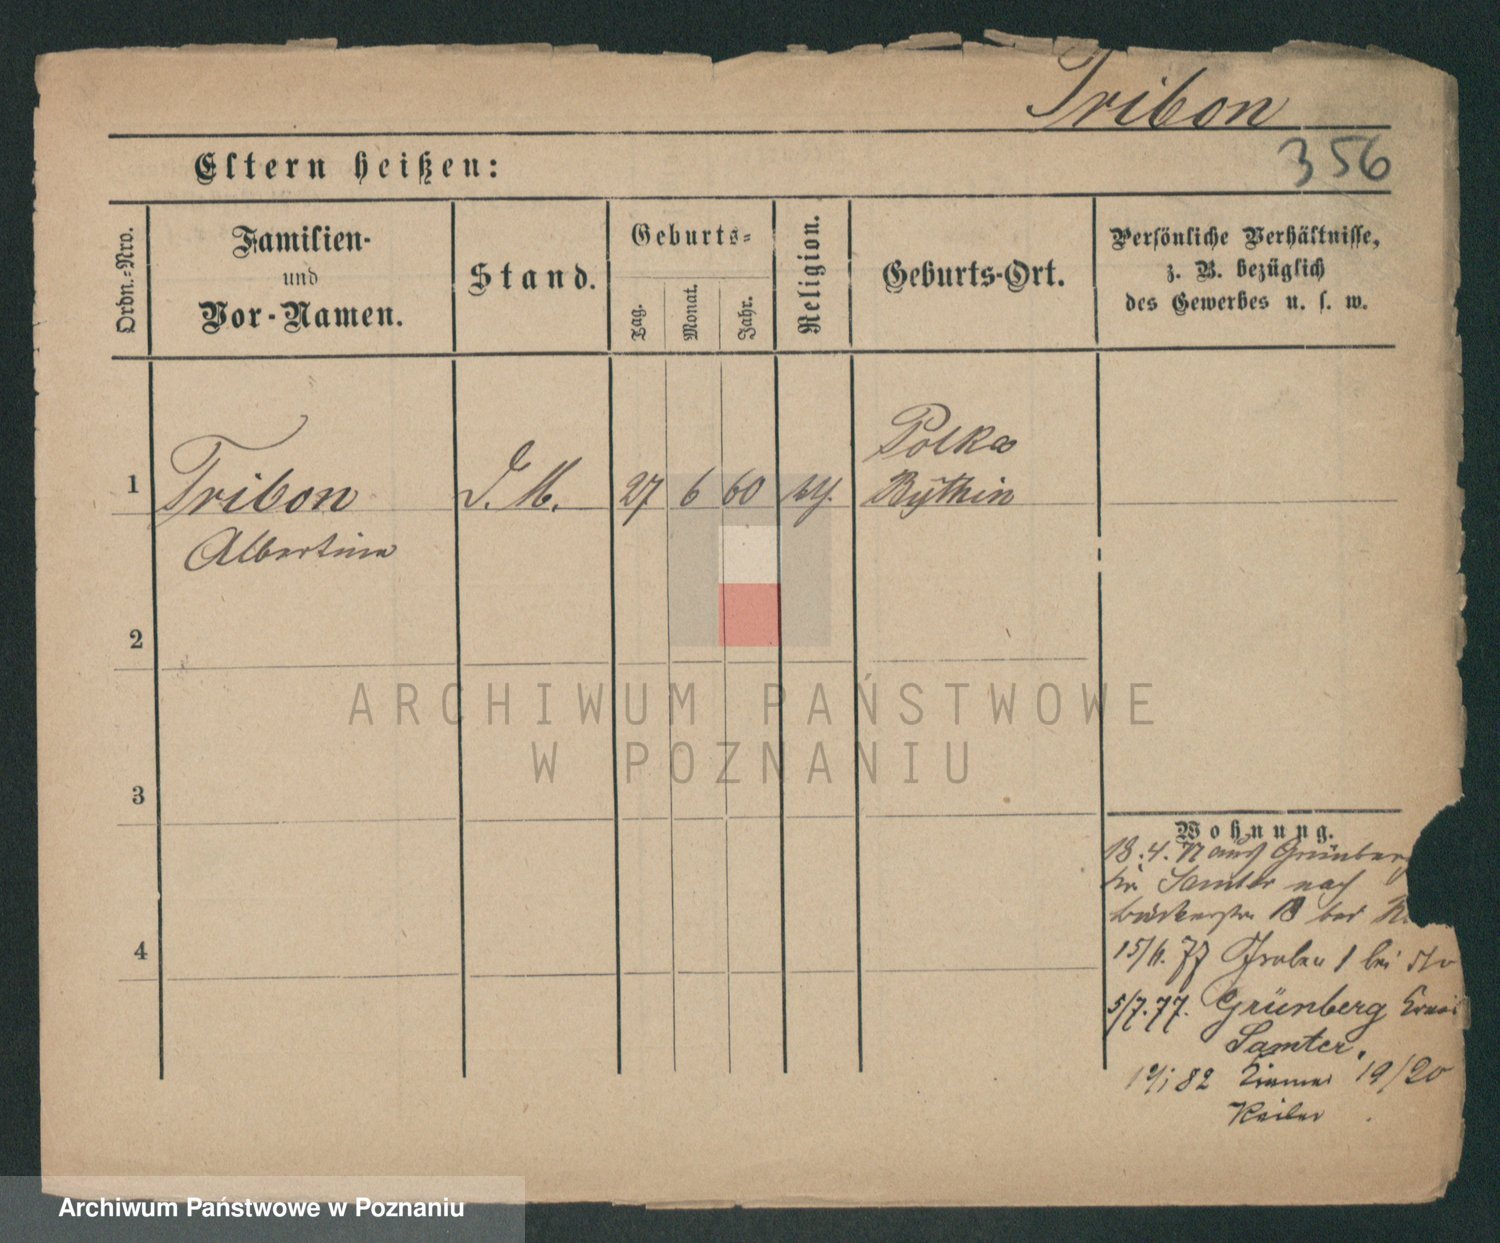 Tribon
356
Eltern heißen:
Ordn.-Nro.
Familien-
und
Vor-Namen.
Stand.
Geburts-
Tag.
Monat.
Jahr.
Religion.
Geburts-Ort.
Persönliche Verhältnisse,
z. B. bezüglich
des Gewerbes u. s. w.
1
Tribon
Albertine
D. M.
27
6
60
Polka
Bythin
2
3
4
Wohnung.
18.4.77 aus Grünberg
Samter nach
18 bei
15/6.77 1 bei
5/7.77. Grünberg Kreis
Samter.
82 19/20
ARCHIWUM PAŃSTWOWE
W POZNANIU
Archiwum Państwowe w Poznaniu